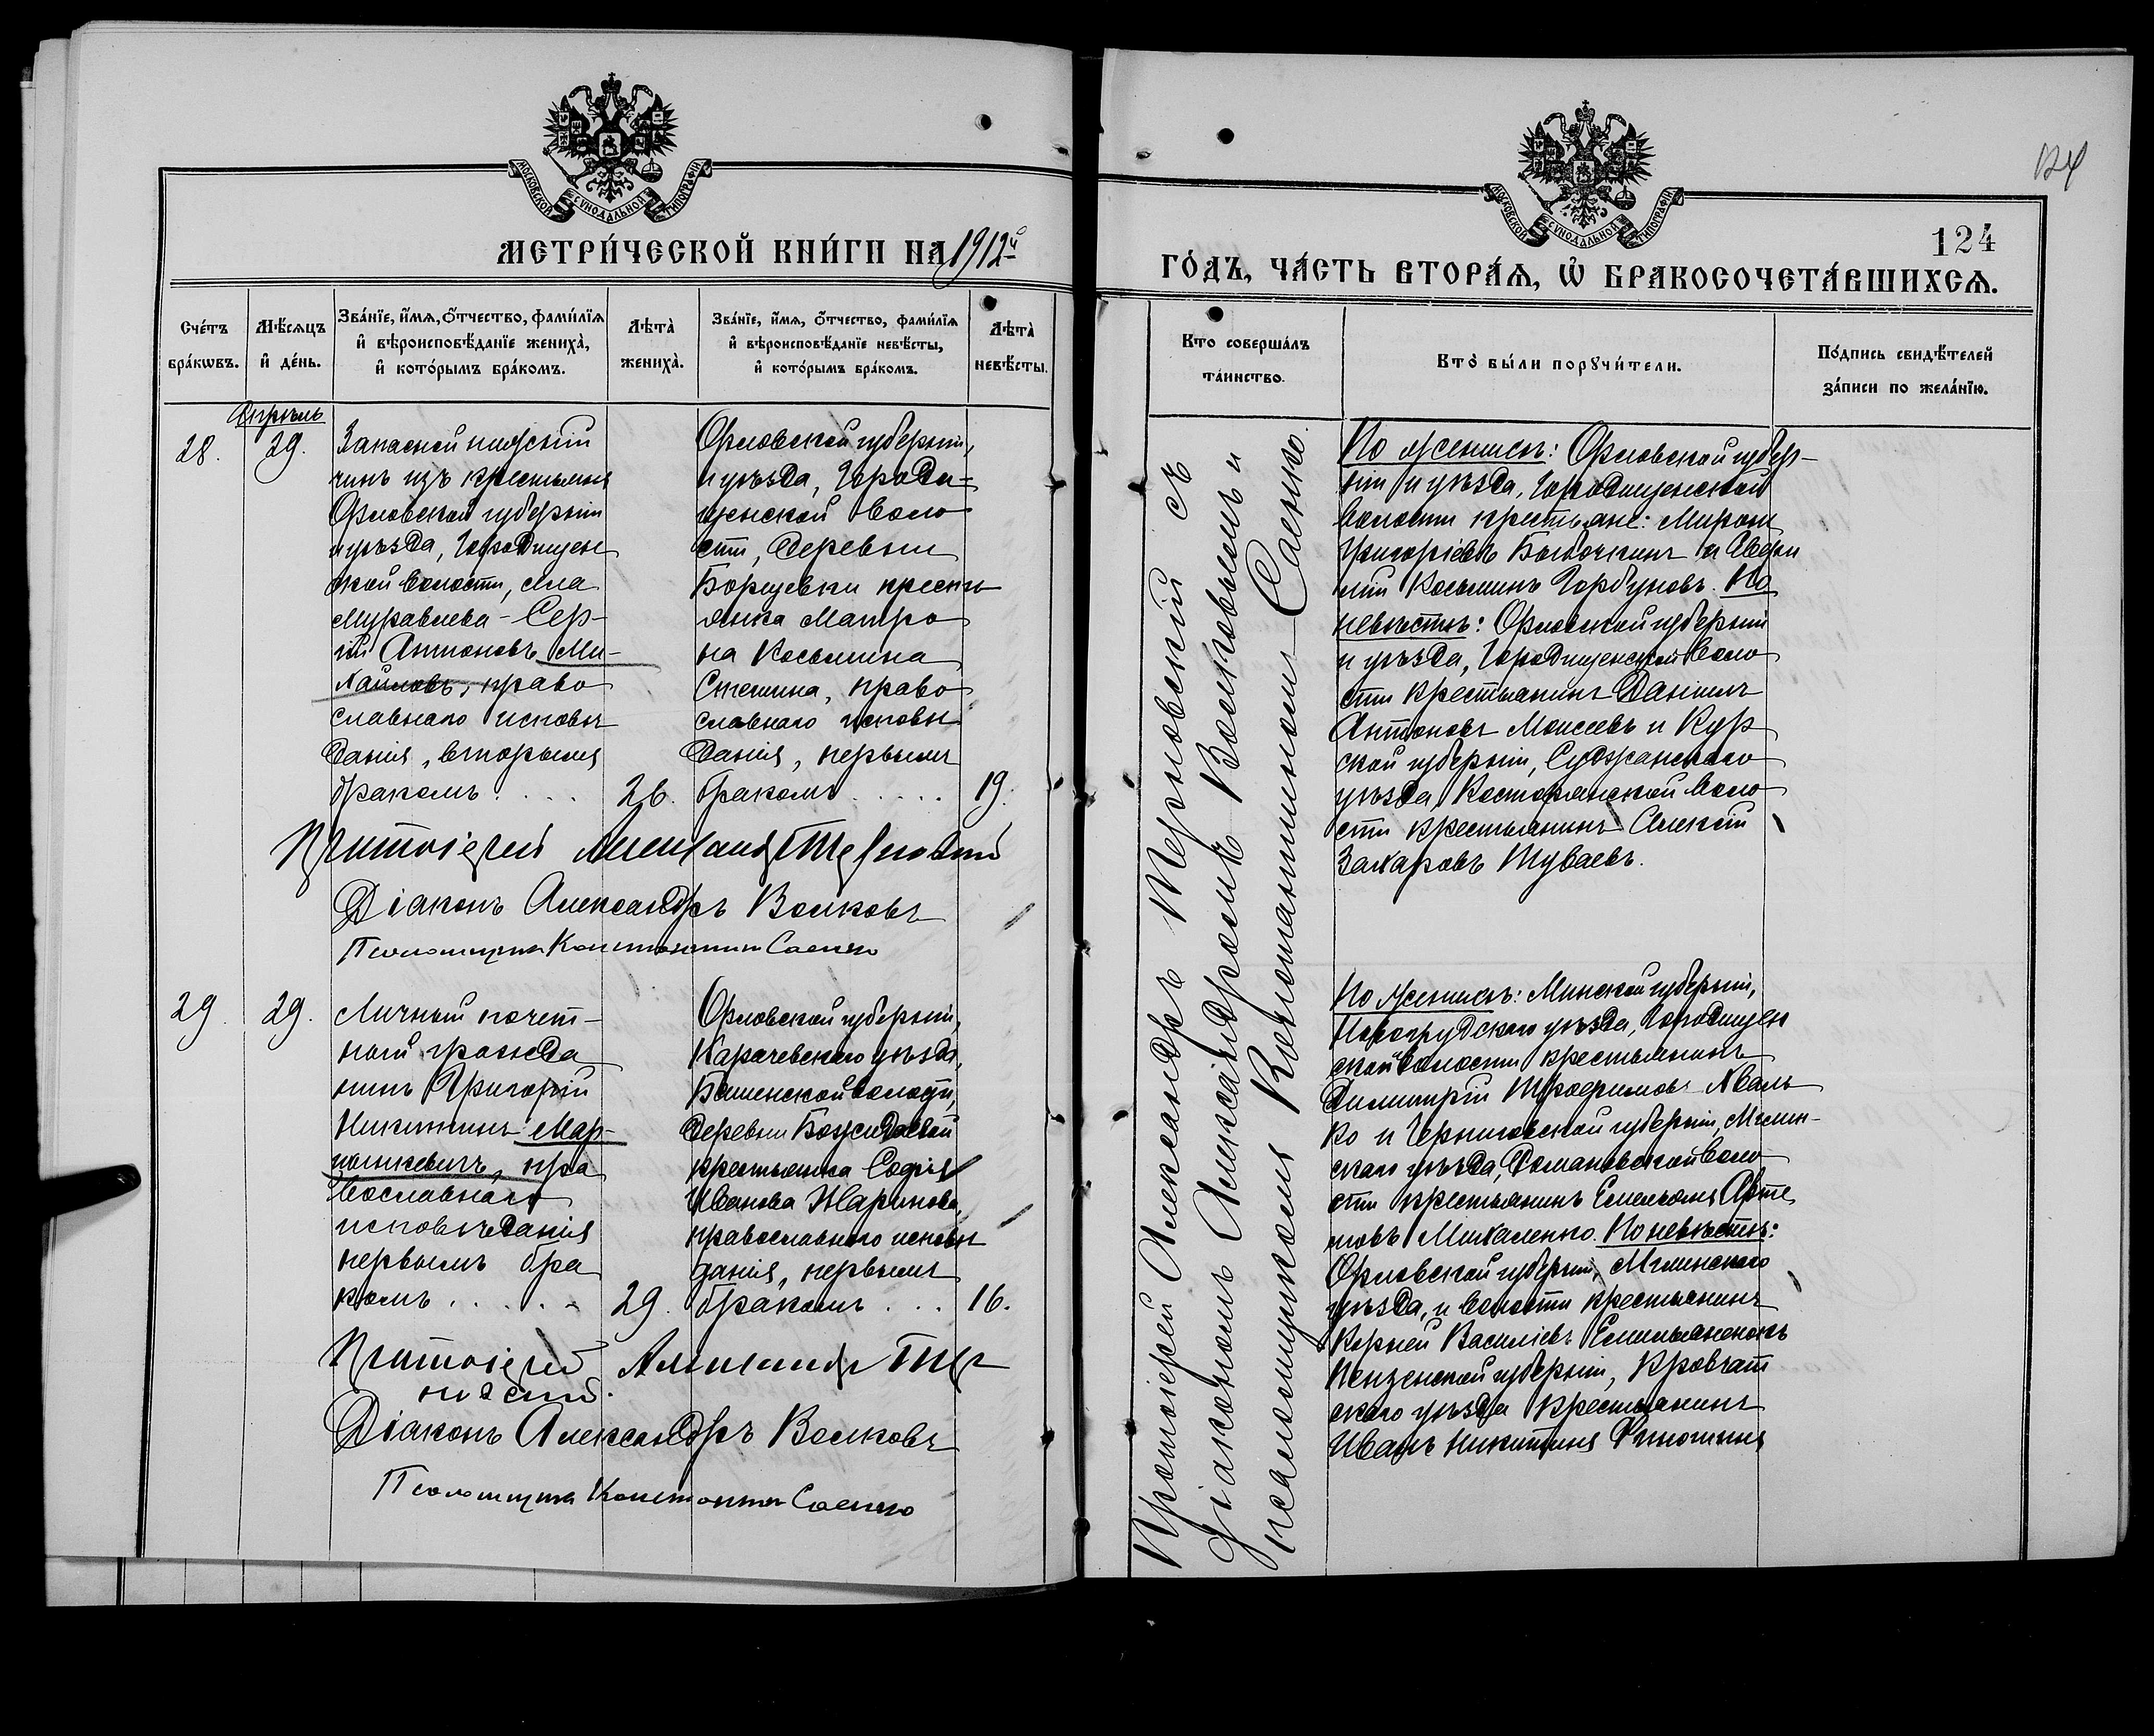 МОСКОВСКОЙ СѴНОДАЛЬНОЙ ТИПОГРАФІИ
МЕТРИ́ЧЕСКОЙ КНИ́ГИ НА 1912й
Сче́тъ бра́кѡвъ.
Мѣ́сяцъ и҆ де́нь.
Зва́нїе, и҆́мя, ѻ҆́тчество, фами́лїя
и҆ вѣроисповѣ́данїе жениха̀,
и҆ кото́рымъ бра́комъ.
Лѣта̀ жениха̀.
Зва́нїе, и҆́мя, ѻ҆́тчество, фами́лїя
и҆ вѣроисповѣ́данїе невѣ́сты,
и҆ кото́рымъ бра́комъ.
Лѣта̀ невѣ́сты.
Апрѣль
28.
29.
Запасной нижній
чинъ изъ крестьянъ
Орловской губерніи
и уѣзда, Городищен
ской волости, села
Муравлева - Сер-
гій Антоновъ Ми-
хайловъ, право
славнаго исповѣ
данія, вторымъ
бракомъ . . . .
26.
Орловской губерніи,
и уѣзда, Городи-
щенской воло
сти, деревни
Борщевки кресть
янка Матро
на Косьмина
Стешина, право
славнаго исповѣ
данія, первымъ
бракомъ . . . . .
19.
Протоіерей Александръ Терновскій
Діаконъ Александръ Волковъ
Псаломщикъ Константинъ Саенко
29.
29.
Личный почет-
ный гражда
нинъ Григорій
Никитинъ Мар-
цынкевичъ, пра
вославнаго
исповѣданія
первымъ бра
комъ . . . . .
29.
Орловской губерніи,
Карачевскаго уѣзда,
деревни
крестьянка Софія
Иванова
православнаго исповѣ
данія, первымъ
бракомъ . . .
16.
Протоіерей Александръ Тер
новскій.
Діаконъ Александръ Волковъ
Псаломщикъ Константинъ Саенко
124
МОСКОВСКОЙ СѴНОДАЛЬНОЙ ТИПОГРАФІИ
124
ГО́ДЪ, ЧА́СТЬ ВТОРА́Ѧ, Ѡ҆ БРАКОСОЧЕТА́ВШИХСѦ.
Кто соверша́лъ
та́инство.
Кто̀ бы́ли порꙋчи́тели.
По́дпись свидѣ́телей
за́писи по жела́нїю.
Протоіерей Александръ Терновскій съ
діакономъ Александромъ Волковымъ и
псаломщикомъ Константиномъ Саенко.
По женихѣ: Орловской губер-
ніи и уѣзда, Городищенской
волости крестьяне: Миронъ
Григорьевъ и
Косьминъ Горбуновъ. По
невѣстѣ: Орловской губерніи
и уѣзда, Городищенской воло
сти крестьянинъ Даніилъ
Антоновъ Моисеевъ и Кур
ской губерніи, Суджанскаго
уѣзда, воло
сти крестьянинъ Алексій
Захаровъ Шуваевъ.
По женихѣ: Минской губерніи,
Новогрудскаго уѣзда, Городищен
ской волости крестьянинъ
Димитрій Трофимовъ Хваль
ко и Черниговской губерніи, Мглин-
скаго уѣзда, Романовской воло
сти крестьянинъ Емельянъ Арте
мовъ Михаленко. По невѣстѣ:
Орловской губерніи, Мглинскаго
уѣзда, и волости крестьянинъ
Корней Васильевъ Емельяненокъ
Пензенской губерніи,
скаго уѣзда крестьянинъ
Иванъ Никитинъ